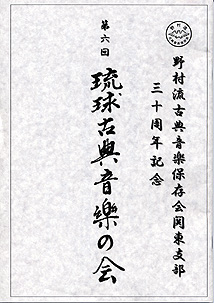 野村流古典音樂保存会関東支部
三十周年記念
第六回
琉球古典音樂の会